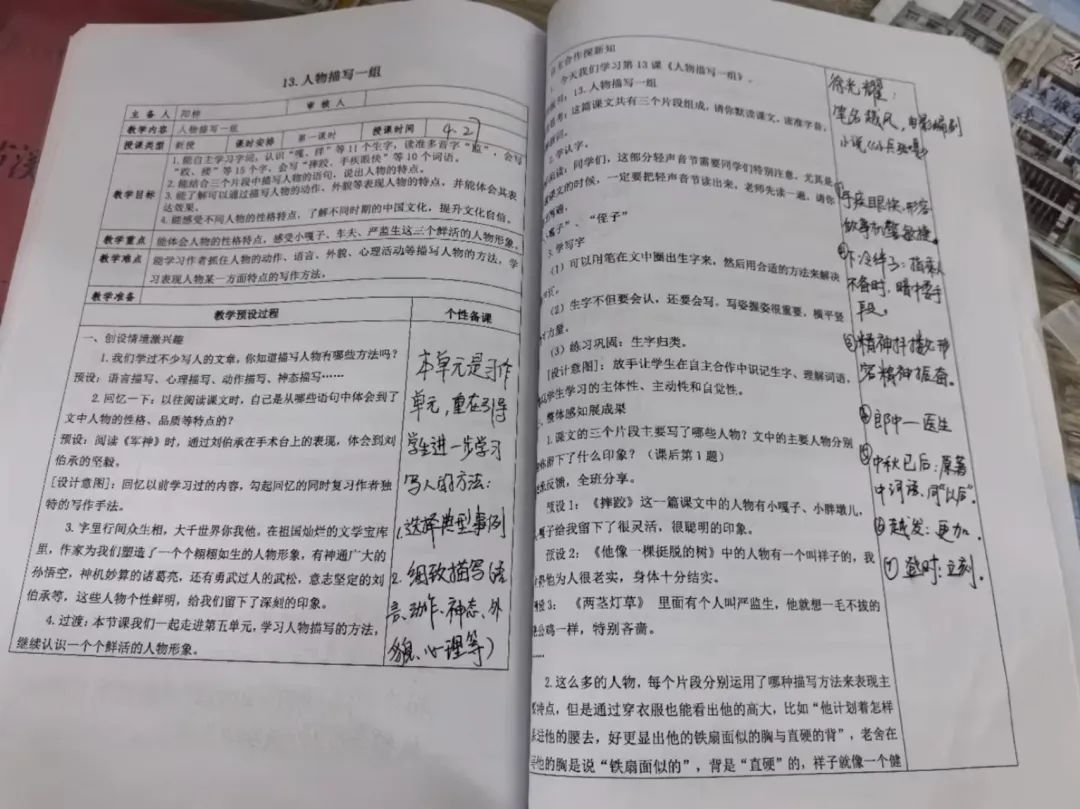 13. 人物描写一组
主 备 人
审 核 人
教学内容 人物描写一组
授课类型 新授 课时安排 第一课时 授课时间 4.27
教学目标
1.能自主学习字词，认识“嘎、绊”等11个生字，读准多音字“监”，会写
“胶、搂”等15个字，会写“摔跤、手疾眼快”等10个词语。
2.能结合三个片段中描写人物的语句，说出人物的特点。
3.能了解可以通过描写人物的动作、外貌等表现人物的特点，并能体会其表
达效果。
4.能感受不同人物的性格特点，了解不同时期的中国文化，提升文化自信。
教学重点 能体会人物的性格特点，感受小嘎子、车夫、严监生这三个鲜活的人物形象。
教学难点 能学习作者抓住人物的动作、语言、外貌、心理活动等描写人物的方法，学
习表现人物某一方面特点的写作方法，
教学准备
教学预设过程 个性备课
一、创设情境激兴趣
1.我们学过不少写人的文章，你知道描写人物有哪些方法吗？
预设：语言描写、心理描写、动作描写、神态描写……
2.回忆一下：以往阅读课文时，自己是从哪些语句中体会到了
文中人物的性格、品质等特点的？
预设：阅读《军神》时，通过刘伯承在手术台上的表现，体会到刘
伯承的坚毅。
[设计意图]：回忆以前学习过的内容，勾起回忆的同时复习作者独
特的写作手法。
3.字里行间众生相，大千世界你我他，在祖国灿烂的文学宝库
里，作家为我们塑造了一个个栩栩如生的人物形象，有神通广大的
孙悟空，神机妙算的诸葛亮，还有勇武过人的武松，意志坚定的刘
伯承等，这些人物个性鲜明，给我们留下了深刻的印象。
4.过渡：本节课我们一起走进第五单元，学习人物描写的方法，
继续认识一个个鲜活的人物形象。
本单元是习作
单元，重在引导
学生进一步学习
写人的方法：
1.选择典型事例
2. 细致描写（语
言、动作、神态、外
貌、心理等）
自主合作探新知
今天我们学习第13课《人物描写一组》。
：13.人物描写一组
考：这篇课文共有三个片段组成，请你默读课文，读准字音，
学认字。
读，同学们，这部分轻声音节需要同学们特别注意。尤其是
课文的时候，一定要把轻声音节读出来，老师先读一遍，请你
子”、“侄子”
3.学写字
（1）可以用笔在文中圈出生字来，然后用合适的方法来解决
（2）生字不但要会认，还要会写。写姿握姿很重要，横平竖
力量。
（3）练习巩固：生字归类。
[设计意图]：放手让学生在自主合作中识记生字、理解词语，
学生学习的主体性、主动性和自觉性。
整体感知展成果
1.课文的三个片段主要写了哪些人物？文中的主要人物分别
留下了什么印象？（课后第1题）
反馈，全班分享。
预设1：《摔跤》这一篇课文中的人物有小嘎子、小胖墩儿，
子给我留下了很灵活，很聪明的印象。
预设2：《他像一棵挺脱的树》中的人物有一个叫祥子的，我
他为人很老实，身体十分结实。
预设3：《两茎灯草》 里面有个人叫严监生，他就想一毛不拔的
公鸡一样，特别吝啬。
……
2.这么多的人物，每个片段分别运用了哪种描写方法来表现主
特点，但是通过穿衣服也能看出他的高大，比如“他计划着怎样
进他的腰去，好更显出他的铁扇面似的胸与直硬的背”，老舍在
他的胸是说“铁扇面似的”，背是“直硬”的，样子就像一个健
徐光耀：
笔名越风，电影编剧
小说《小兵张嘎》
手疾眼快：形容
做事机警敏捷。
下冷绊子：指乘人
不备时，暗中耍手
段。
③精神抖擞：形
容精神振奋。
郎中—医生
中秋已后：原著
中词语，同“以后”。
越发：更加。
⑦登时：立刻。